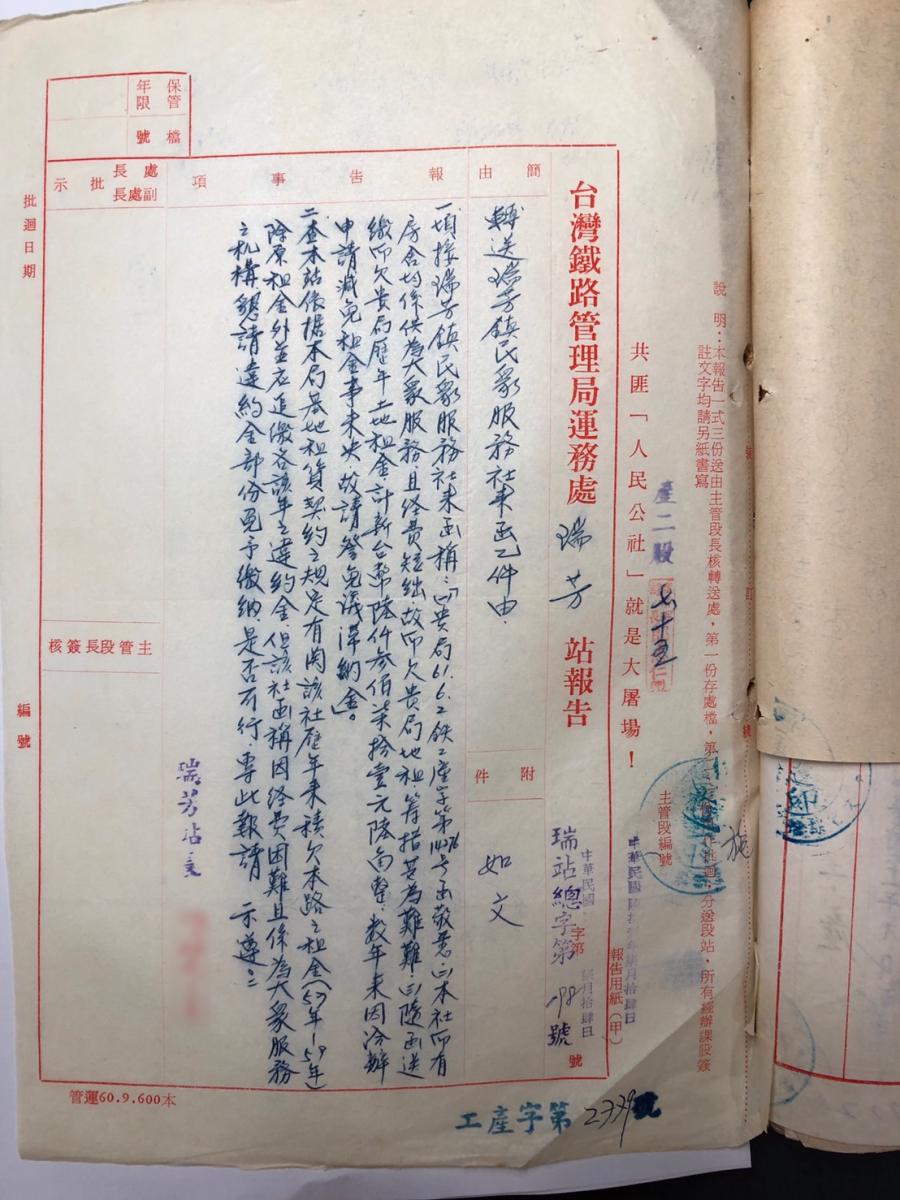 說明：本報告一式三份送由主管段長核轉送處，第一份存處檔，第
分送段站，所有經辦課股簽
註文字均請另紙書寫
產二股
七十五
共匪「人民公社」就是大屠場！
主管段編號
中華民國陸拾年柒月拾肆日
報告用紙（甲）
台灣鐵路管理局運務處 瑞芳 站報告
中華民國 年柒月拾肆日
瑞站總字第98號
字第 號
簡由
轉送瑞芳鎮民眾服務社來函乙件由
附件
如文
報告事項
一、頃接瑞芳鎮民眾服務社來函稱：「㈠貴局61.6.2鉄工產字第14276号函敬悉㈡本社所有
房舍均係供為大眾服務且経費短絀故所欠貴局地租，籌措甚為難難㈢隨函送
繳所欠貴局歷年土地租金計新台幣陸仟參佰柒拾壹元陸角整，数年来因洽辦
申請減免租金事未央故請督免議漳納金」。
二、查本站依據本局基地租賃契約之規定有関該社歷年来積欠本路之租金(57年—59年)
除原租金外並应追缴各該年之違約金但該社函稱因経費困難且係為大衆服務
之机構懇請違約金部份免予繳納，是否可行，專此報請 示遵：
瑞芳站長
處長
副處長
批示
主管段長簽核
保管年限
檔號
批迴日期
編號
管運60.9.600本
工產字第2339號